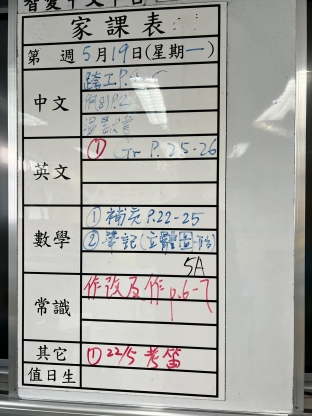 家課表
第 週 5月19日(星期一)
中文
英文 ① Gr P. 25-26
數學 ① 補充 P.22-25
② 筆記(立體圖形)
5A
常識 作改及作 p.6-7
其它 ① 22/5 考笛
值日生